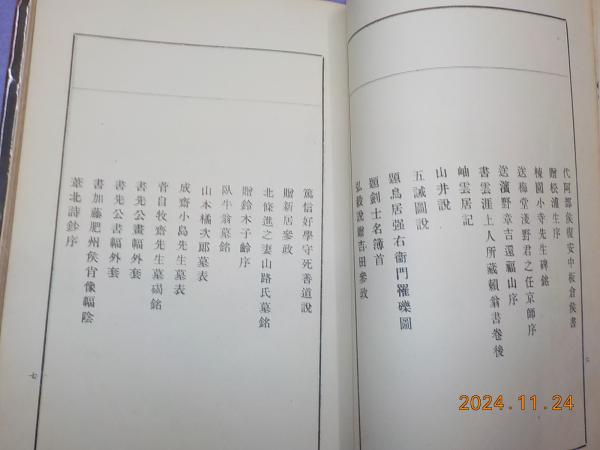 代阿部侯復安中板倉侯書
贈松浦生序
棟園小寺先生碑銘
送梅堂淺野君之任京師序
送濱野章吉還福山序
書雲涯上人所藏賴翁書卷後
岫雲居記
山井說
五誡圖說
題鳥居强右衞門罹磔圖
題劍士名簿首
弘毅說贈吉田參政
篤信好學守死善道說
贈新居參政
北條進之妻山路氏墓銘
贈鈴木子齡序
臥牛翁墓銘
山本橘次郎墓表
成齋小島先生墓表
菅自牧齋先生墓碣銘
書先公畫幅外套
書先公書幅外套
書加藤肥州侯肖像幅陰
葦北詩鈔序
七
2024.11.24